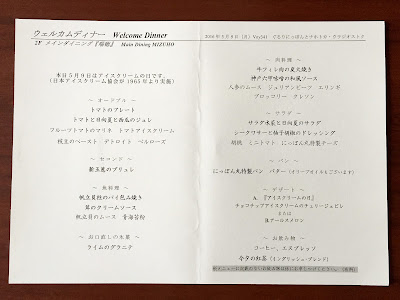 ウェルカムディナー Welcome Dinner
2F メインダイニング『瑞穂』 Main Dining MIZUHO
本日5月9日はアイスクリームの日です。
(日本アイスクリーム協会が1965年より実施)
～ オードブル ～
トマトのアレート
トマトと日向夏と西瓜のジュレ
フルーツトマトのマリネ トマトアイスクリーム
枝豆のペースト デトロイト ベルローズ
～ セコンド ～
新玉葱のブリュレ
～ 魚料理 ～
帆立貝柱のパイ包み焼き
茸のクリームソース
帆立貝のムース 青海苔粉
～ お口直しの氷菓 ～
ライムのグラニテ
2016年5月9日(月) ぐるりにっぽんとナホトカ・ウラジオストク
～ 肉料理 ～
牛フィレ肉の炭火焼き
神戸六甲味噌の和風ソース
人参のムース ジュリアンビーフ エリンギ
ブロッコリー クレソン
～ サラダ ～
サラダ水菜と日向夏のサラダ
シークワサーと柚子胡椒のドレッシング
胡桃 ミニトマト にっぽん丸特製チーズ
～ パン ～
にっぽん丸特製パン バター (オリーブオイルもございます)
～ デザート ～
A. 『アイスクリームの日』
チョコチップアイスクリームのチェリージュビレ
または
B. クールスメロン
～ お飲み物 ～
コーヒー、エスプレッソ
今夕の紅茶 (イングリッシュ・ブレンド)